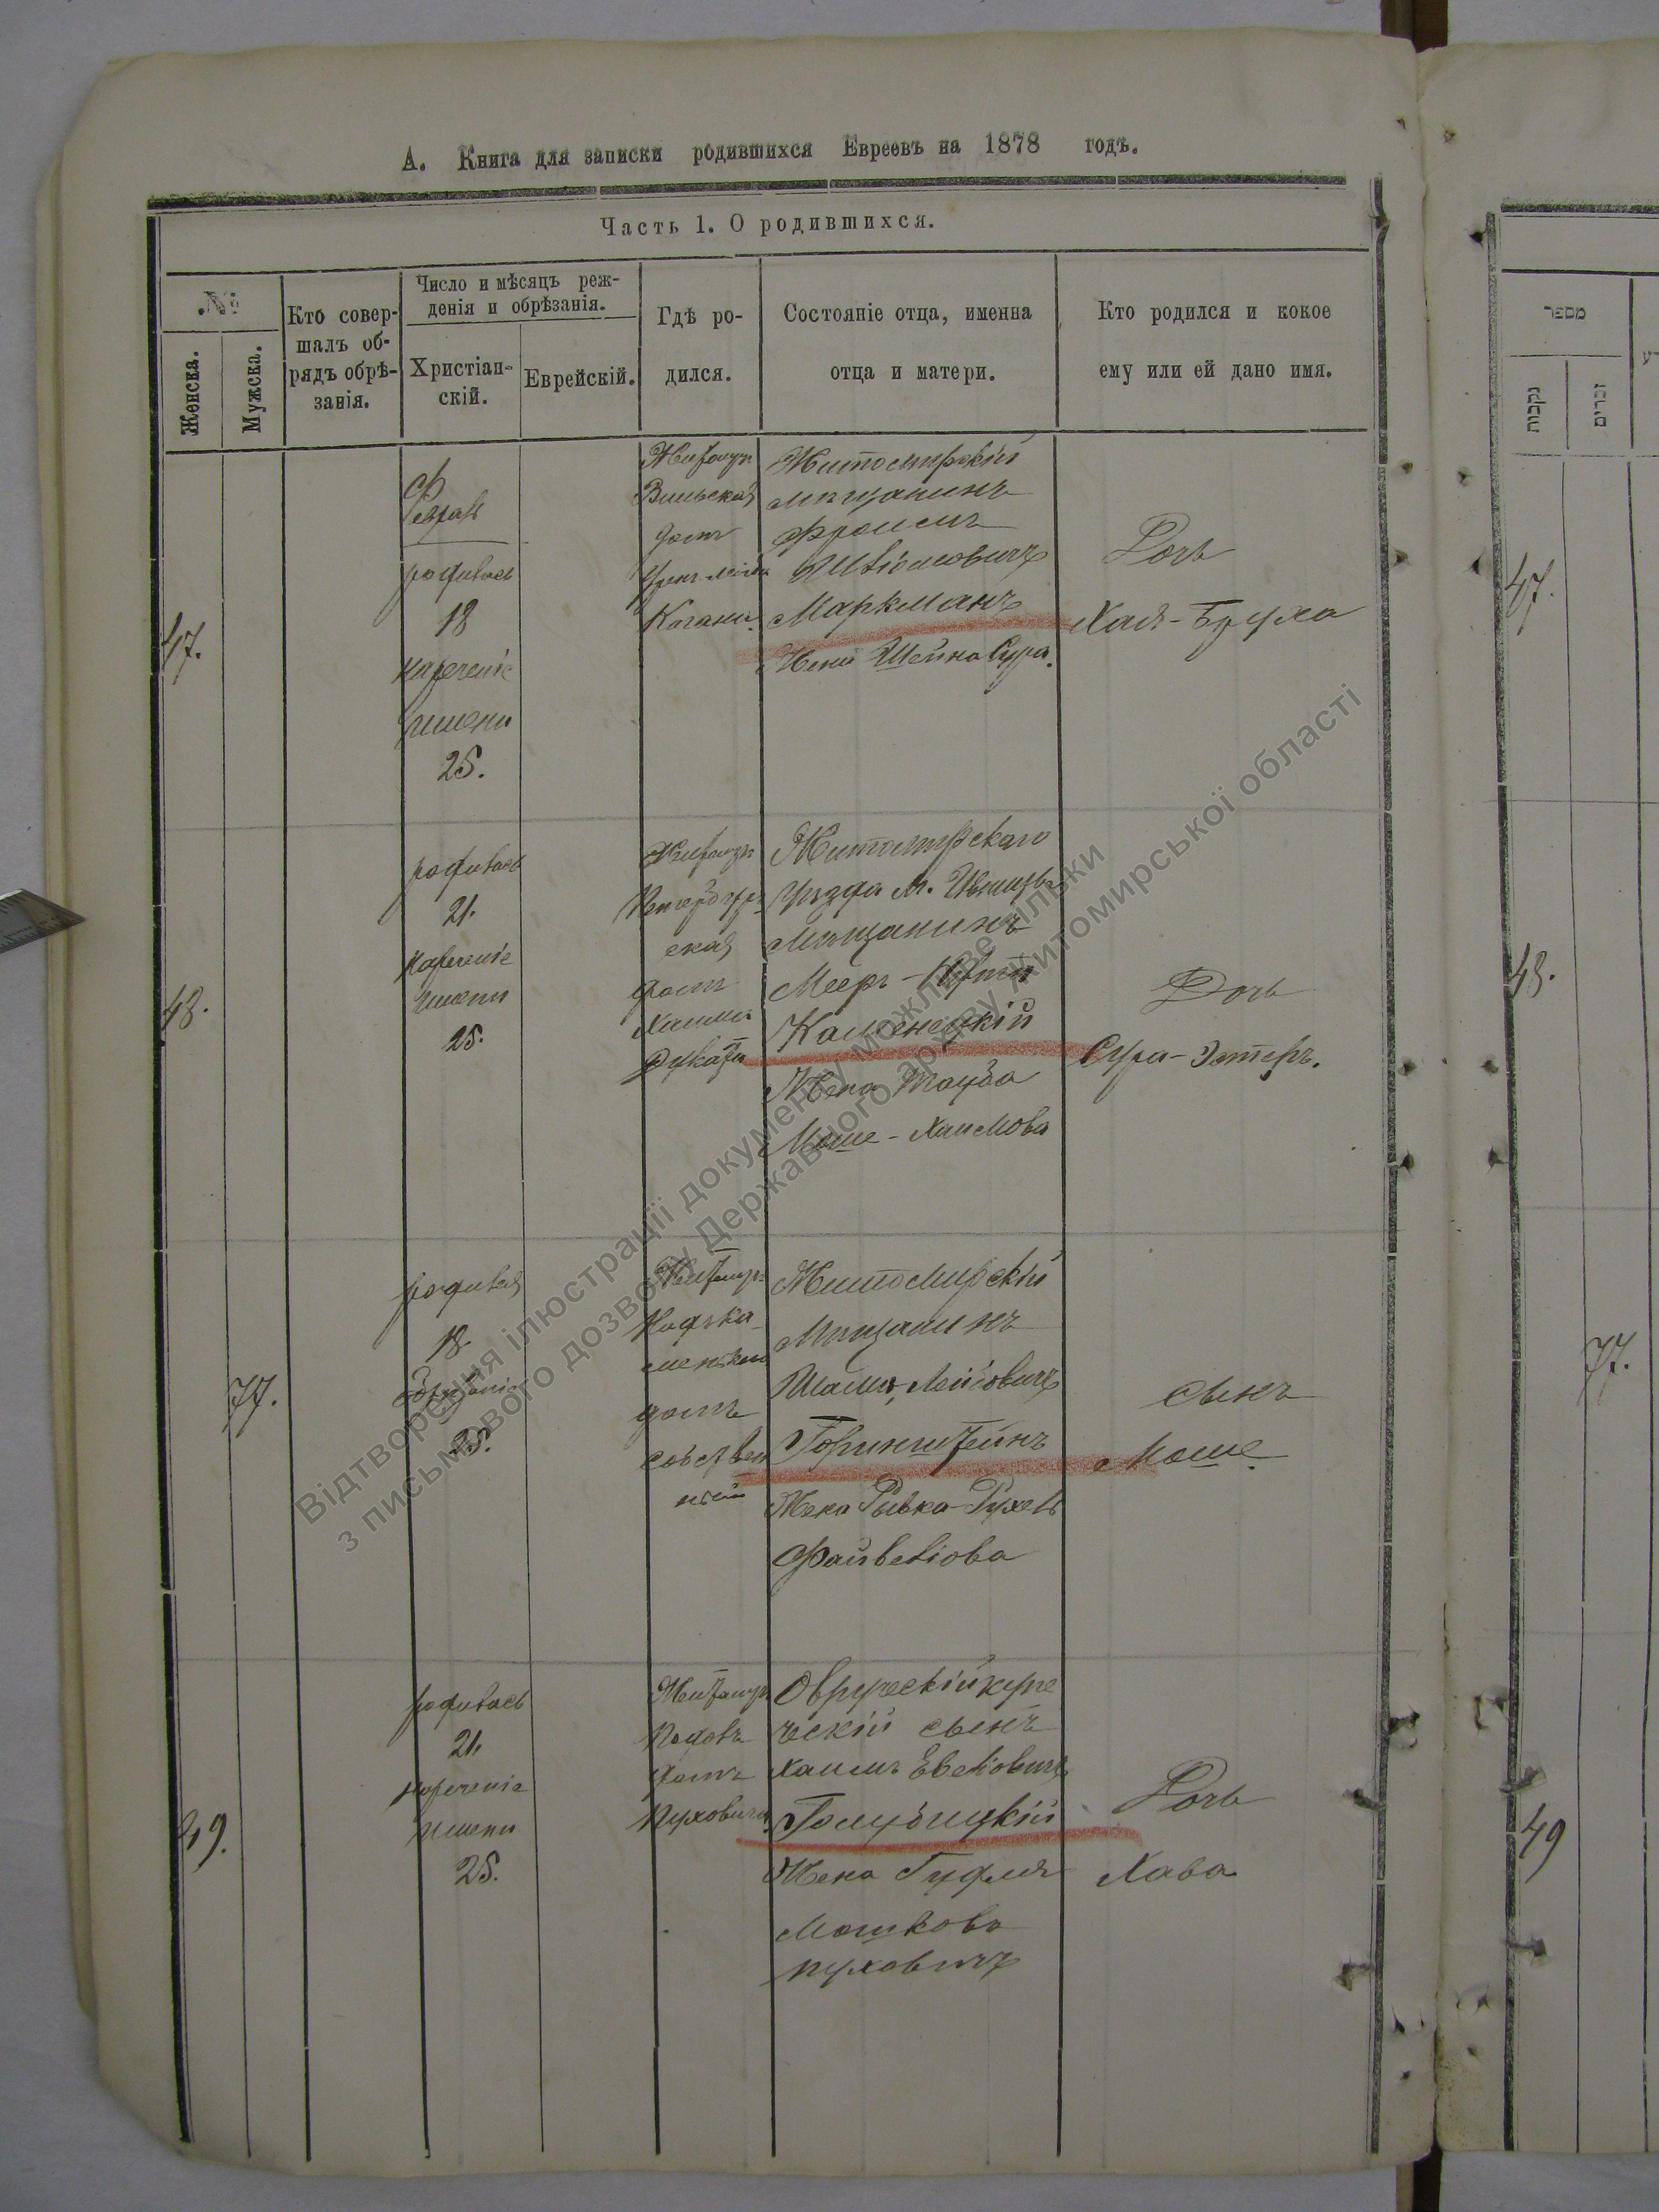 А. Книга для записки родившихся Евреевъ на 1878 годъ.
Часть 1. О родившихся.
№
Женска.
Мужска.
Кто совер-
шалъ об-
рядъ обрѣ-
занія.
Число и мѣсяцъ реж-
денія и обрѣзанія.
Христіан-
скій.
Еврейскій.
Гдѣ ро-
дился.
Состояніе отца, именна
отца и матери.
Кто родился и кокое
ему или ей дано имя.
47.
родилась
18
нареченіе
имени
25.
Вильская
домъ
Когана.
Житомирскій
мѣщанинъ
Фроимъ
Маркманъ
Жена Шейна Сура.
Дочь
Хая-Бруха
48.
родилась
21.
нареченіе
имени
25.
ская
домъ
Житомирскаго
Уѣзда м.
Мѣщанинъ
Мееръ-
Каменецкій
Жена Тауба
Моше-Хаимова
Дочь
Сура-Эстеръ.
77.
родился
18
25.
домъ
Житомирскій
Мѣщанинъ
Лейбовичъ
Горинштейнъ
Жена Рывка-Рухель
Файвелiова
сынъ
Моше.
49.
родилась
21.
нареченіе
имени
25.
домъ
Пуховича.
Овручскій купе
ческій сынъ
Хаимъ Евелiовичъ
Голубицкій
Жена Гудля
Мошкова
пуховичъ
Дочь
Хава
מספר
נקבות
זכרים
47.
48.
77.
49
Відтворення ілюстрації документу можливе тільки
з письмового дозволу Державного архіву Житомирської області